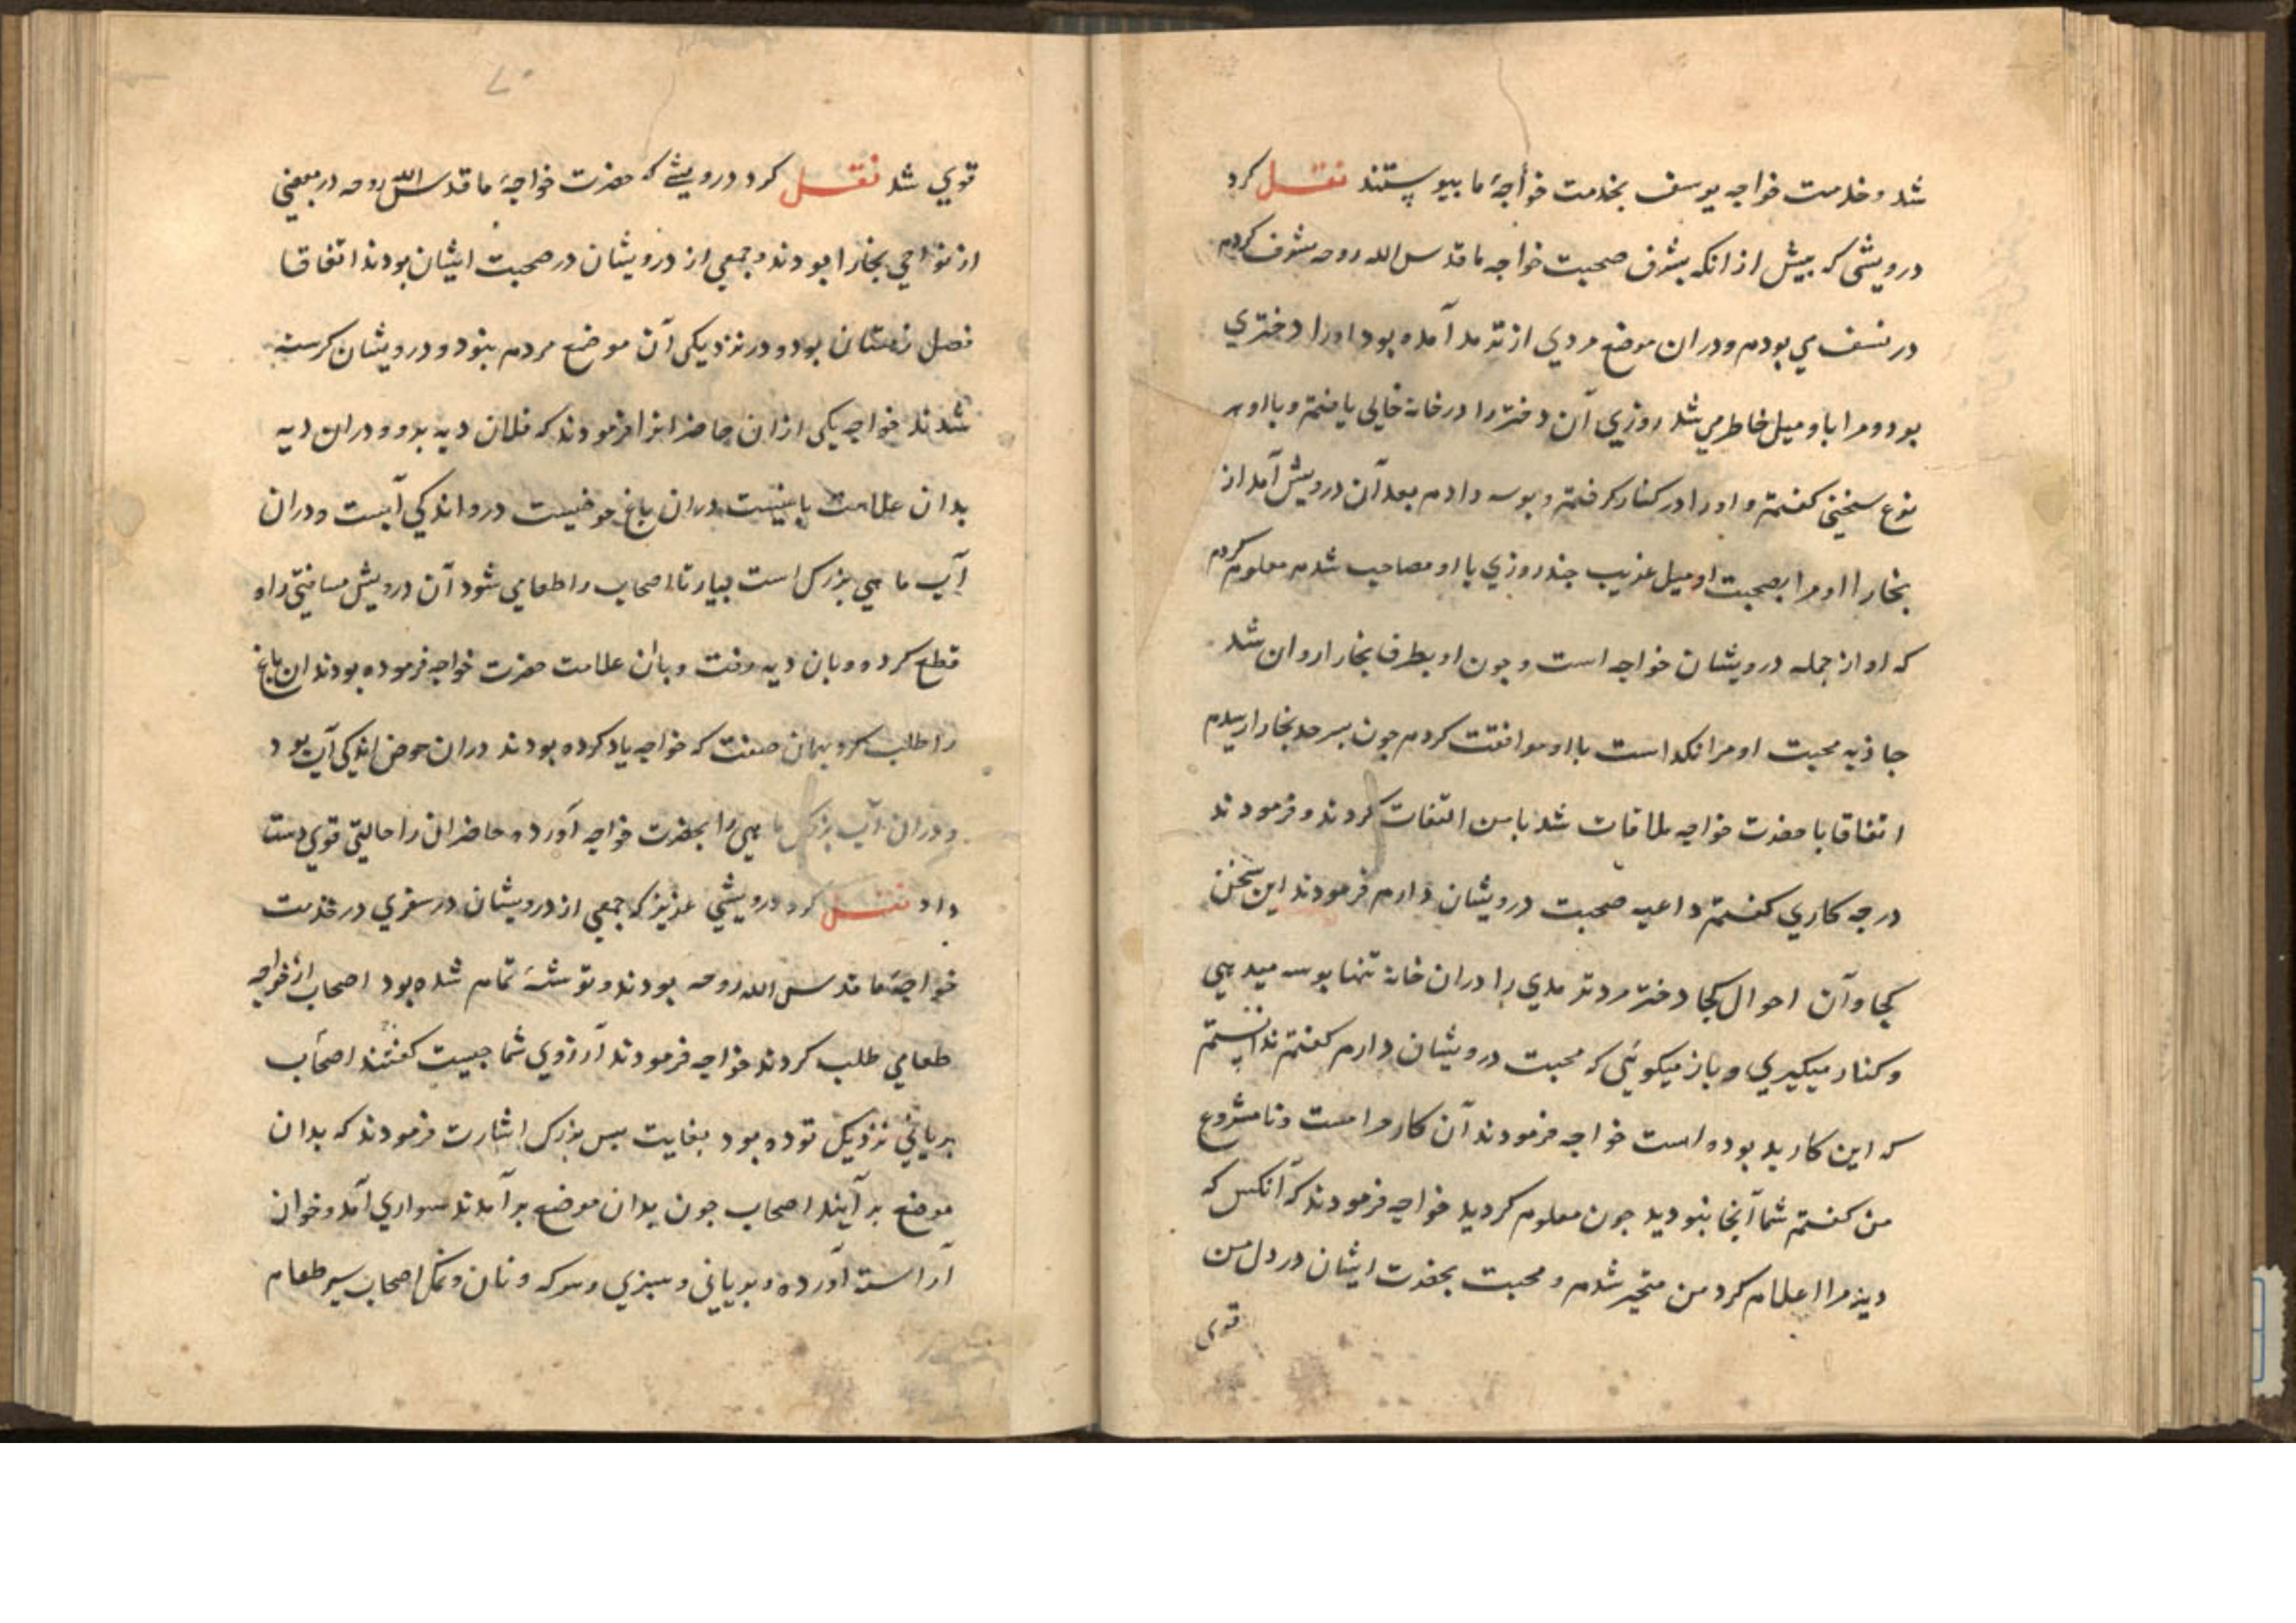 شد و خدمت خواجه یوسف بخدمت خواجهٔ ما بپیوستند نقل کرد
درویشی که پیش از انکه بشرف صحبت خواجه ما قدس الله روحه مشرف کردم
در نسف می بودم و دران موضع مردی از ترمد آمده بود او را دختری
بود و مرا باو میل خاطر می شد روزی آن دختر را در خانه خالی یافتم و با او هر
نوع سخنی کفتم و او را در کنار کرفتم و بوسه دادم بعد آن درویش آمد از
بخارا او مرا بصحبت او میل غریب چند روزی با او مصاحب شدم معلوم کردم
که او از جمله درویشان خواجه است و چون او بطرف بخارا روان شد
جاذبه محبت او مرا نکداست با او موافقت کردم چون بسرحد بخارا رسیدم
اتفاقا با حضرت خواجه ملاقات شد با من التفات کردند و فرمودند
در چه کاری کفتم داعیه صحبت درویشان دارم فرمودند این سخن
کجا و آن احوال کجا دختر مرد ترمدی را دران خانه تنها بوسه میدهی
و کنار میکیری و باز میکوئی که محبت درویشان دارم کفتم ندانستم
که این کار بد بوده است خواجه فرمودند آن کار حرامست و نامشروع
من کفتم شما آنجا نبودید چون معلوم کردید خواجه فرمودند که آنکس که
دید مرا اعلام کرد من متحیر شدم و محبت بحضرت ایشان در دل من
قوی
۷۰
قوی شد نقل کرد درویشی که حضرت خواجهٔ ما قدس الله روحه در بعضی
از نواحی بخارا بودند و جمعی از درویشان در صحبت ایشان بودند اتفاقا
فصل زمستان بود و در نزدیکی آن موضع مردم نبود و درویشان کرسنه
شدند خواجه یکی از ان حاضرانرا فرمودند که فلان دیه برو و دران دیه
بدان علامت باغیست دران باغ حوضیست درو اندکی آبست و دران
آب ماهی بزرک است بیار تا اصحاب را طعامی شود آن درویش مسافتی راه
قطع کرده و بان دیه رفت و بان علامت حضرت خواجه فرموده بودند ان باغ
را طلب کرد بهمان صفت که خواجه یاد کرده بودند دران حوض اندکی آب بود
و دران آب بزرک ماهی را بحضرت خواجه آورده حاضران را حالتی قوی دست
داد نقل کرد درویشی عزیز که جمعی از درویشان در سفری در خدمت
خواجهٔ ما قدس الله روحه بودند و توشهٔ تمام شده بود اصحاب از خواجه
طعامی طلب کردند خواجه فرمودند آرزوی شما چیست کفتند اصحاب
بریانی نزدیک توده بود بغایت بس بزرک اشارت فرمودند که بدان
موضع بر آیند اصحاب چون بدان موضع بر آمدند سواری آمد و خوان
آراسته آورده و بریانی و سبزی و سرکه و نان و نمک اصحاب سیر طعام